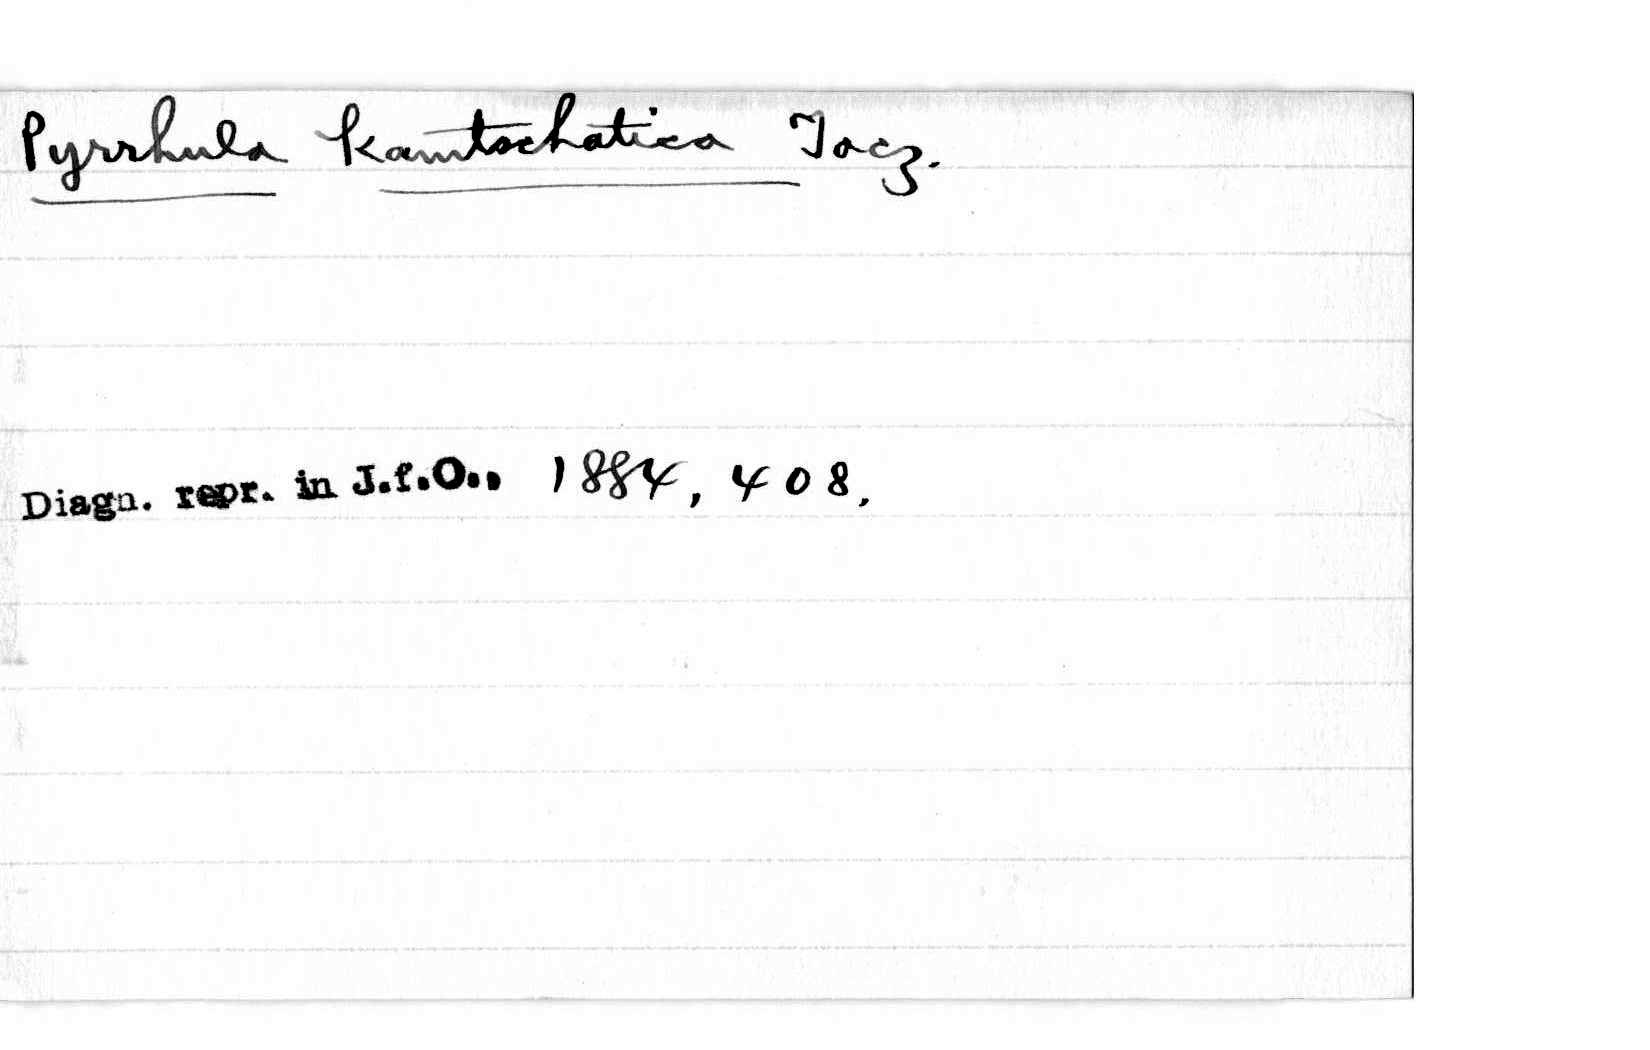 Pyrrhula kamtschatica Tacz.
Diagn. repr. in J.f.O., 1884, 408.